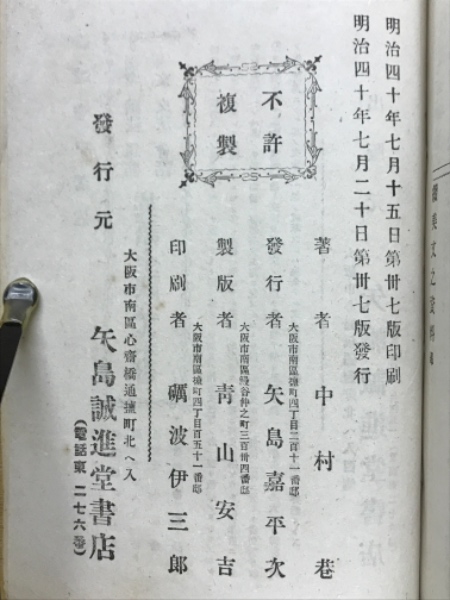 明治四十年七月十五日第卅七版印刷
明治四十年七月二十日第卅七版發行
不許
複製
著者 中村巷
大阪市南區㙒町四丁目二百十一番邸
發行者 矢島嘉平次
大阪市南區谷仲之町三百卅四番邸
製版者 靑山安吉
大阪市南區町四丁目百五十一番邸
印刷者 礪波伊三郎
大阪市南區心齋橋通町北ヘ入
發行元 矢島誠進堂書店
(電話東二七六番)
美文之資料